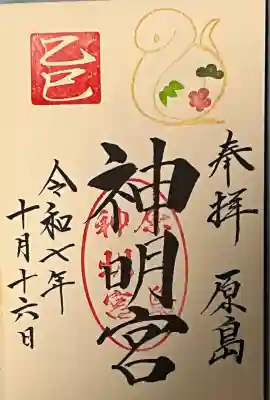 奉拝 原島
神明宮
乙巳
令和七年
十月十六日